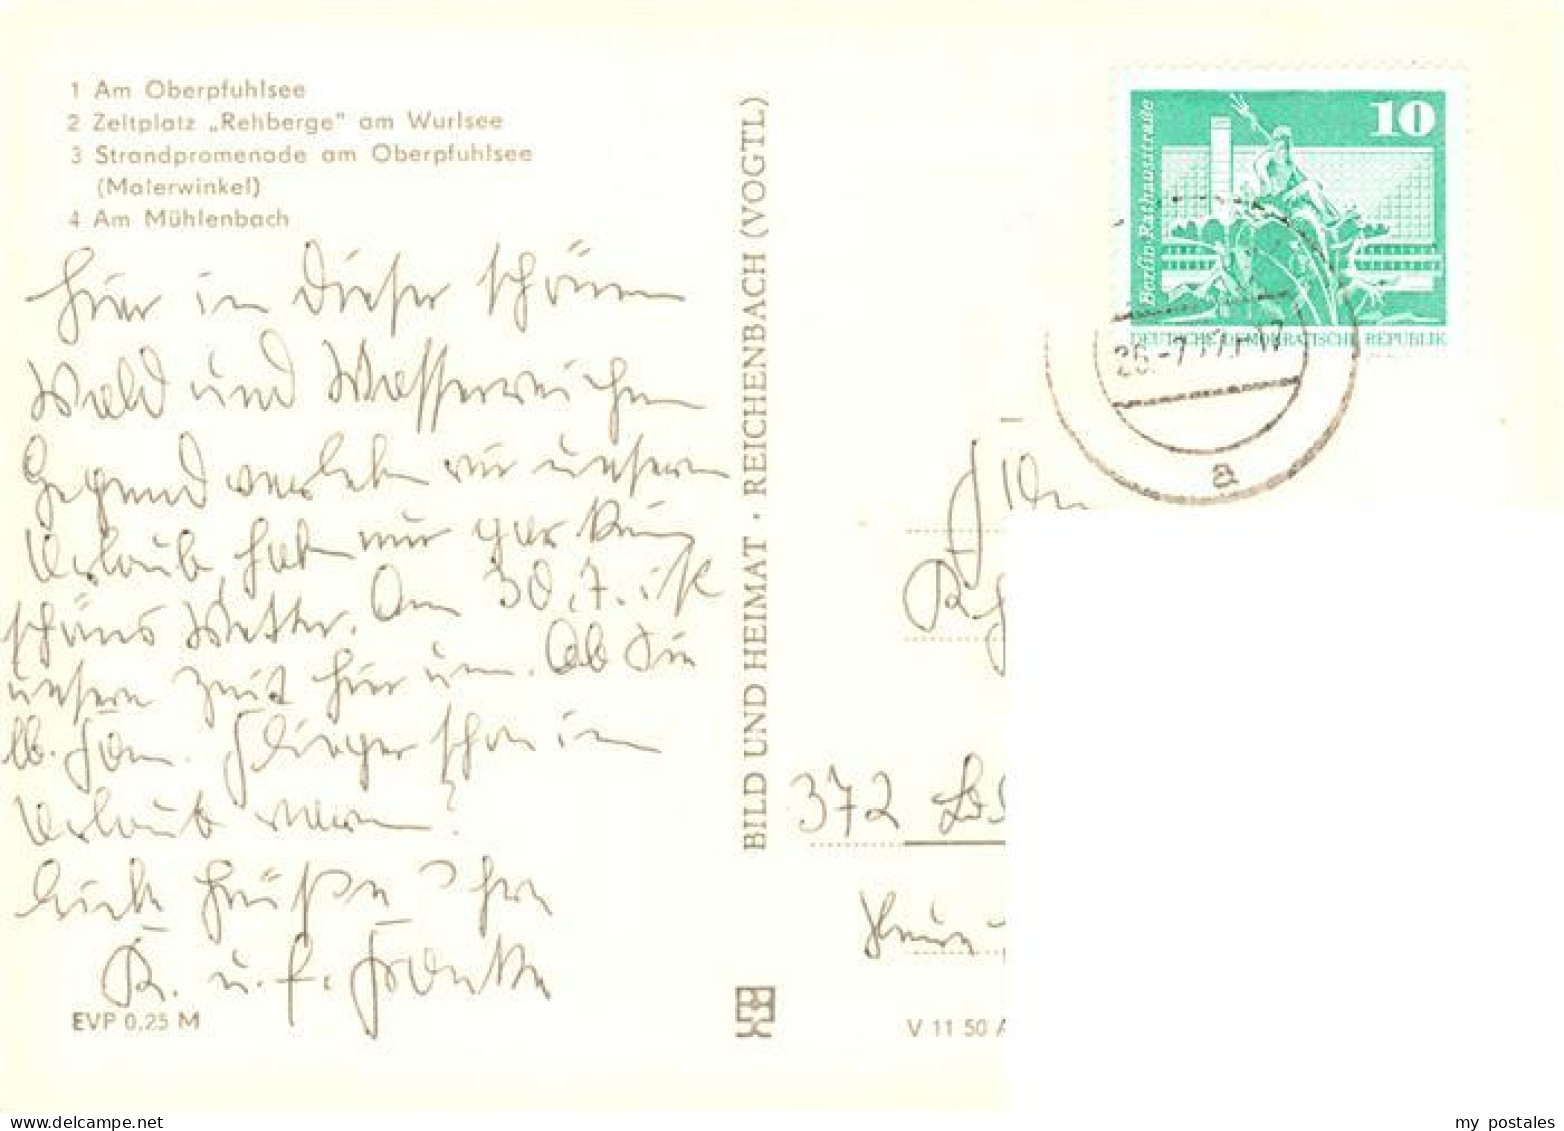 1 Am Oberpfuhlsee
2 Zeltplatz „Rehberge" am Wurlsee
3 Strandpromenade am Oberpfuhlsee
(Malerwinkel)
4 Am Mühlenbach
Hier in dieser schönen
Wald und Wasserreichen
Gegend verleben wir unseren
Urlaub, haben nur gar kein
schönes Wetter. Am 30.7. ist
unsere Zeit hier um. Ob Sie
lb. schon im
Urlaub waren?
Liebe Grüße Ihre
K. u. F. Franke
EVP 0,25 M
BILD UND HEIMAT · REICHENBACH (VOGTL)
10
Berlin-Rathausstraße
DEUTSCHE DEMOKRATISCHE REPUBLIK
26.-7
a
372
V 11 50 A
my postales